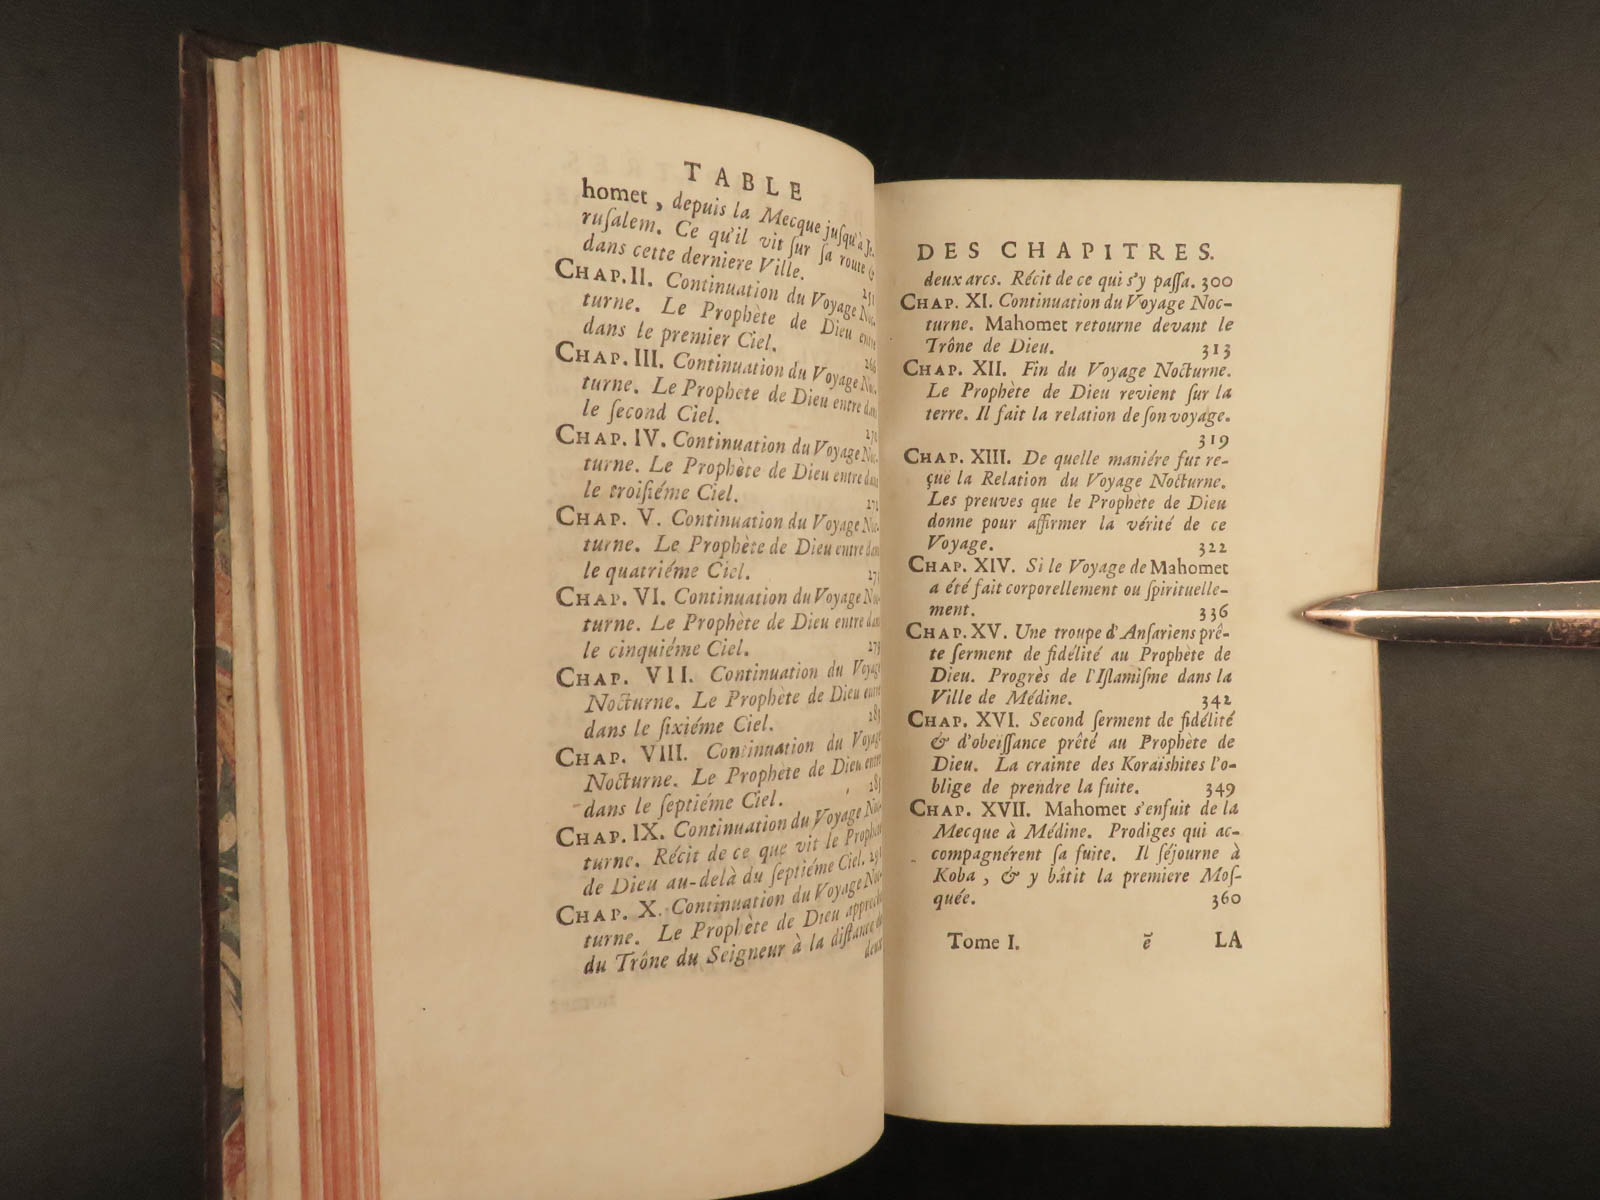 TABLE
homet, depuis la Mecque jusqu'à Je-
ruſalem. Ce qu'il vit ſur ſa route &
dans cette derniere Ville. 251
CHAP. II. Continuation du Voyage Noc-
turne. Le Prophète de Dieu entre
dans le premier Ciel. 266
CHAP. III. Continuation du Voyage Noc-
turne. Le Prophète de Dieu entre dans
le ſecond Ciel.
CHAP. IV. Continuation du Voyage Noc-
turne. Le Prophète de Dieu entre dans
le troiſiéme Ciel.
CHAP. V. Continuation du Voyage Noc-
turne. Le Prophète de Dieu entre dans
le quatriéme Ciel.
CHAP. VI. Continuation du Voyage Noc-
turne. Le Prophète de Dieu entre dans
le cinquiéme Ciel.
CHAP. VII. Continuation du Voyage
Nocturne. Le Prophète de Dieu entre
dans le ſixiéme Ciel.
CHAP. VIII. Continuation du Voyage
Nocturne. Le Prophète de Dieu entre
dans le ſeptiéme Ciel.
CHAP. IX. Continuation du Voyage Noc-
turne. Récit de ce que vit le Prophète
de Dieu au-delà du ſeptiéme Ciel.
CHAP. X. Continuation du Voyage Noc-
turne. Le Prophète de Dieu approche
du Trône du Seigneur à la diſtance de
deux
DES CHAPITRES.
deux arcs. Récit de ce qui s'y paſſa. 300
CHAP. XI. Continuation du Voyage Noc-
turne. Mahomet retourne devant le
Trône de Dieu. 313
CHAP. XII. Fin du Voyage Nocturne.
Le Prophète de Dieu revient ſur la
terre. Il fait la relation de ſon voyage.
319
CHAP. XIII. De quelle maniére fut re-
çuë la Relation du Voyage Nocturne.
Les preuves que le Prophète de Dieu
donne pour affirmer la vérité de ce
Voyage. 322
CHAP. XIV. Si le Voyage de Mahomet
a été fait corporellement ou ſpirituelle-
ment. 336
CHAP. XV. Une troupe d'Anſariens prê-
te ſerment de fidélité au Prophète de
Dieu. Progrès de l'Iſlamiſme dans la
Ville de Médine. 342
CHAP. XVI. Second ſerment de fidélité
& d'obeïſſance prêté au Prophète de
Dieu. La crainte des Koraïshites l'o-
blige de prendre la fuite. 349
CHAP. XVII. Mahomet s'enfuit de la
Mecque à Médine. Prodiges qui ac-
compagnérent ſa fuite. Il ſéjourne à
Koba, & y bâtit la premiere Moſ-
quée. 360
Tome I. ẽ LA